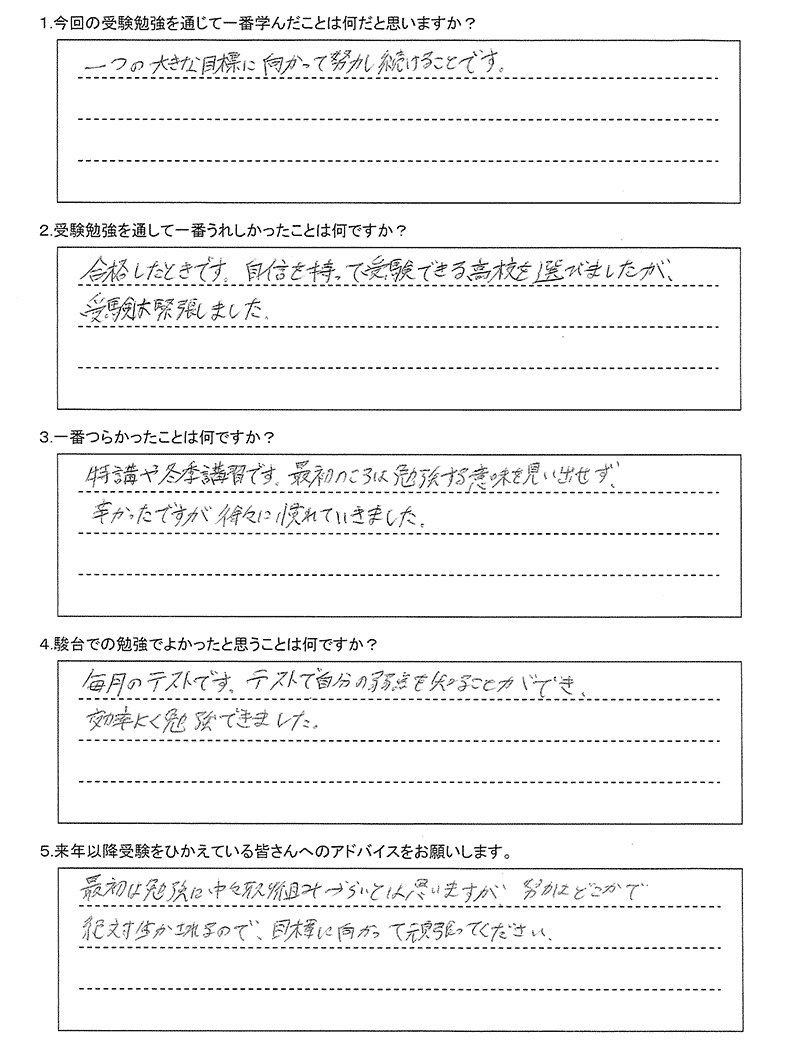 1.今回の受験勉強を通じて一番学んだことは何だと思いますか？
一つの大きな目標に向かって努力し続けることです。
2.受験勉強を通して一番うれしかったことは何ですか？
合格したときです。自信を持って受験できる高校を選びましたが、
受験は緊張しました。
3.一番つらかったことは何ですか？
特講や冬季講習です。最初のころは勉強する意味を見い出せず、
辛かったですが徐々に慣れていきました。
4.駿台での勉強でよかったと思うことは何ですか？
毎月のテストです。テストで自分の弱点を知ることができ、
効率よく勉強できました。
5.来年以降受験をひかえている皆さんへのアドバイスをお願いします。
最初は勉強に中々取り組みづらいとは思いますが 努力はどこかで
絶対生かされるので、目標に向かって頑張ってください。